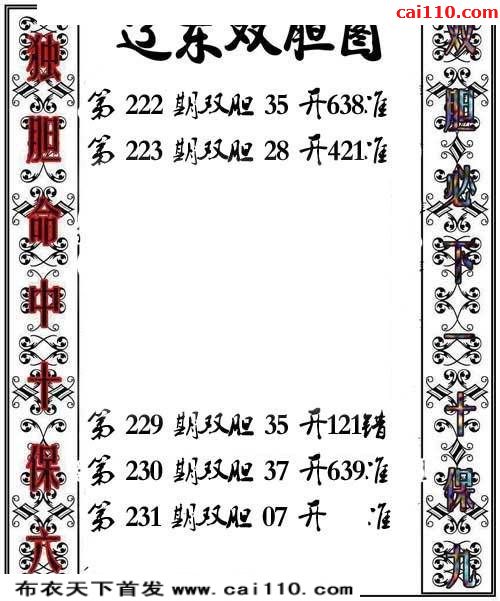 cai110.com
辽东双胆图
独胆命中十保六
第 222 期双胆 35 开638准
第 223 期双胆 28 开421准
第 229 期双胆 35 开121错
第 230 期双胆 37 开639准
第 231 期双胆 07 开 准
双胆必下二十保九
布衣天下首发 www.cai110.com